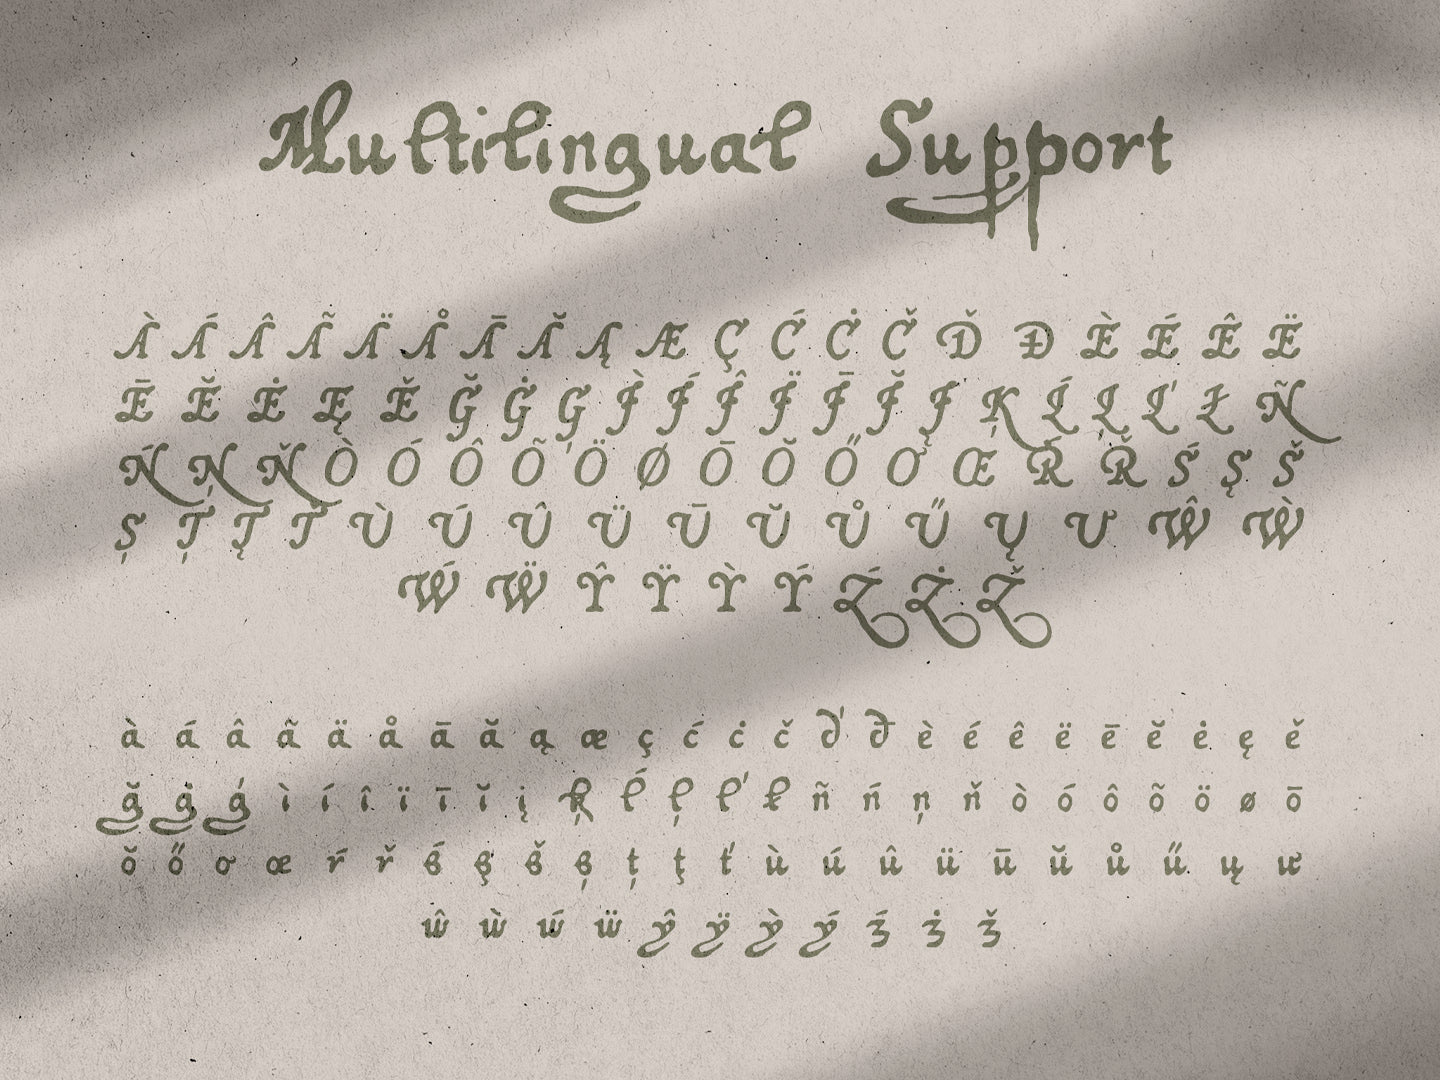 Multilingual Support
À Á Â Ã Ä Å Ā Ă Ą Æ Ç Ć Ċ Č Ď Đ È É Ê Ë
Ē Ĕ Ė Ę Ě Ğ Ġ Ģ Ì Í Î Ï Ī Ĭ Į Ķ Ĺ Ļ Ľ Ł Ñ
Ń Ņ Ň Ò Ó Ô Õ Ö Ø Ō Ŏ Ő Ơ Œ Ŕ Ř Ś Ş Š
Ș Ț Ţ Ť Ù Ú Û Ü Ū Ŭ Ů Ű Ų Ư Ŵ Ẁ
Ẃ Ẅ Ŷ Ÿ Ỳ Ý Ź Ż Ž
à á â ã ä å ā ă ą æ ç ć ċ č ď đ è é ê ë ē ĕ ė ę ě
ğ ġ ģ ì í î ï ī ĭ į ķ ĺ ļ ľ ł ñ ń ņ ň ò ó ô õ ö ø ō
ŏ ő ơ œ ŕ ř ś ş š ș ț ţ ť ù ú û ü ū ŭ ů ű ų ư
ŵ ẁ ẃ ẅ ŷ ÿ ỳ ý ź ż ž